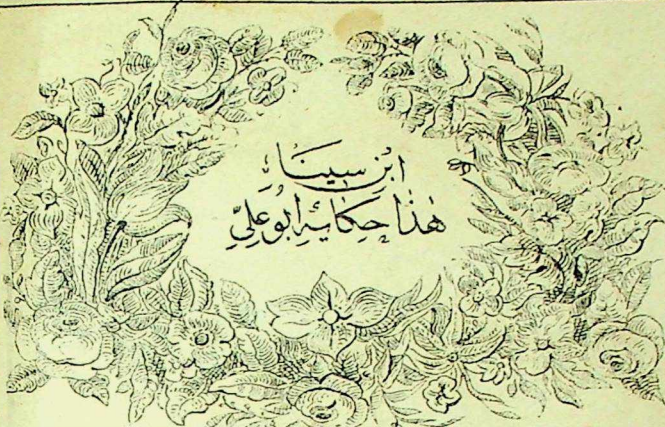 ابن سيناء
هٰذَا حِكَايَۀِ ابُو عَلِىِّ